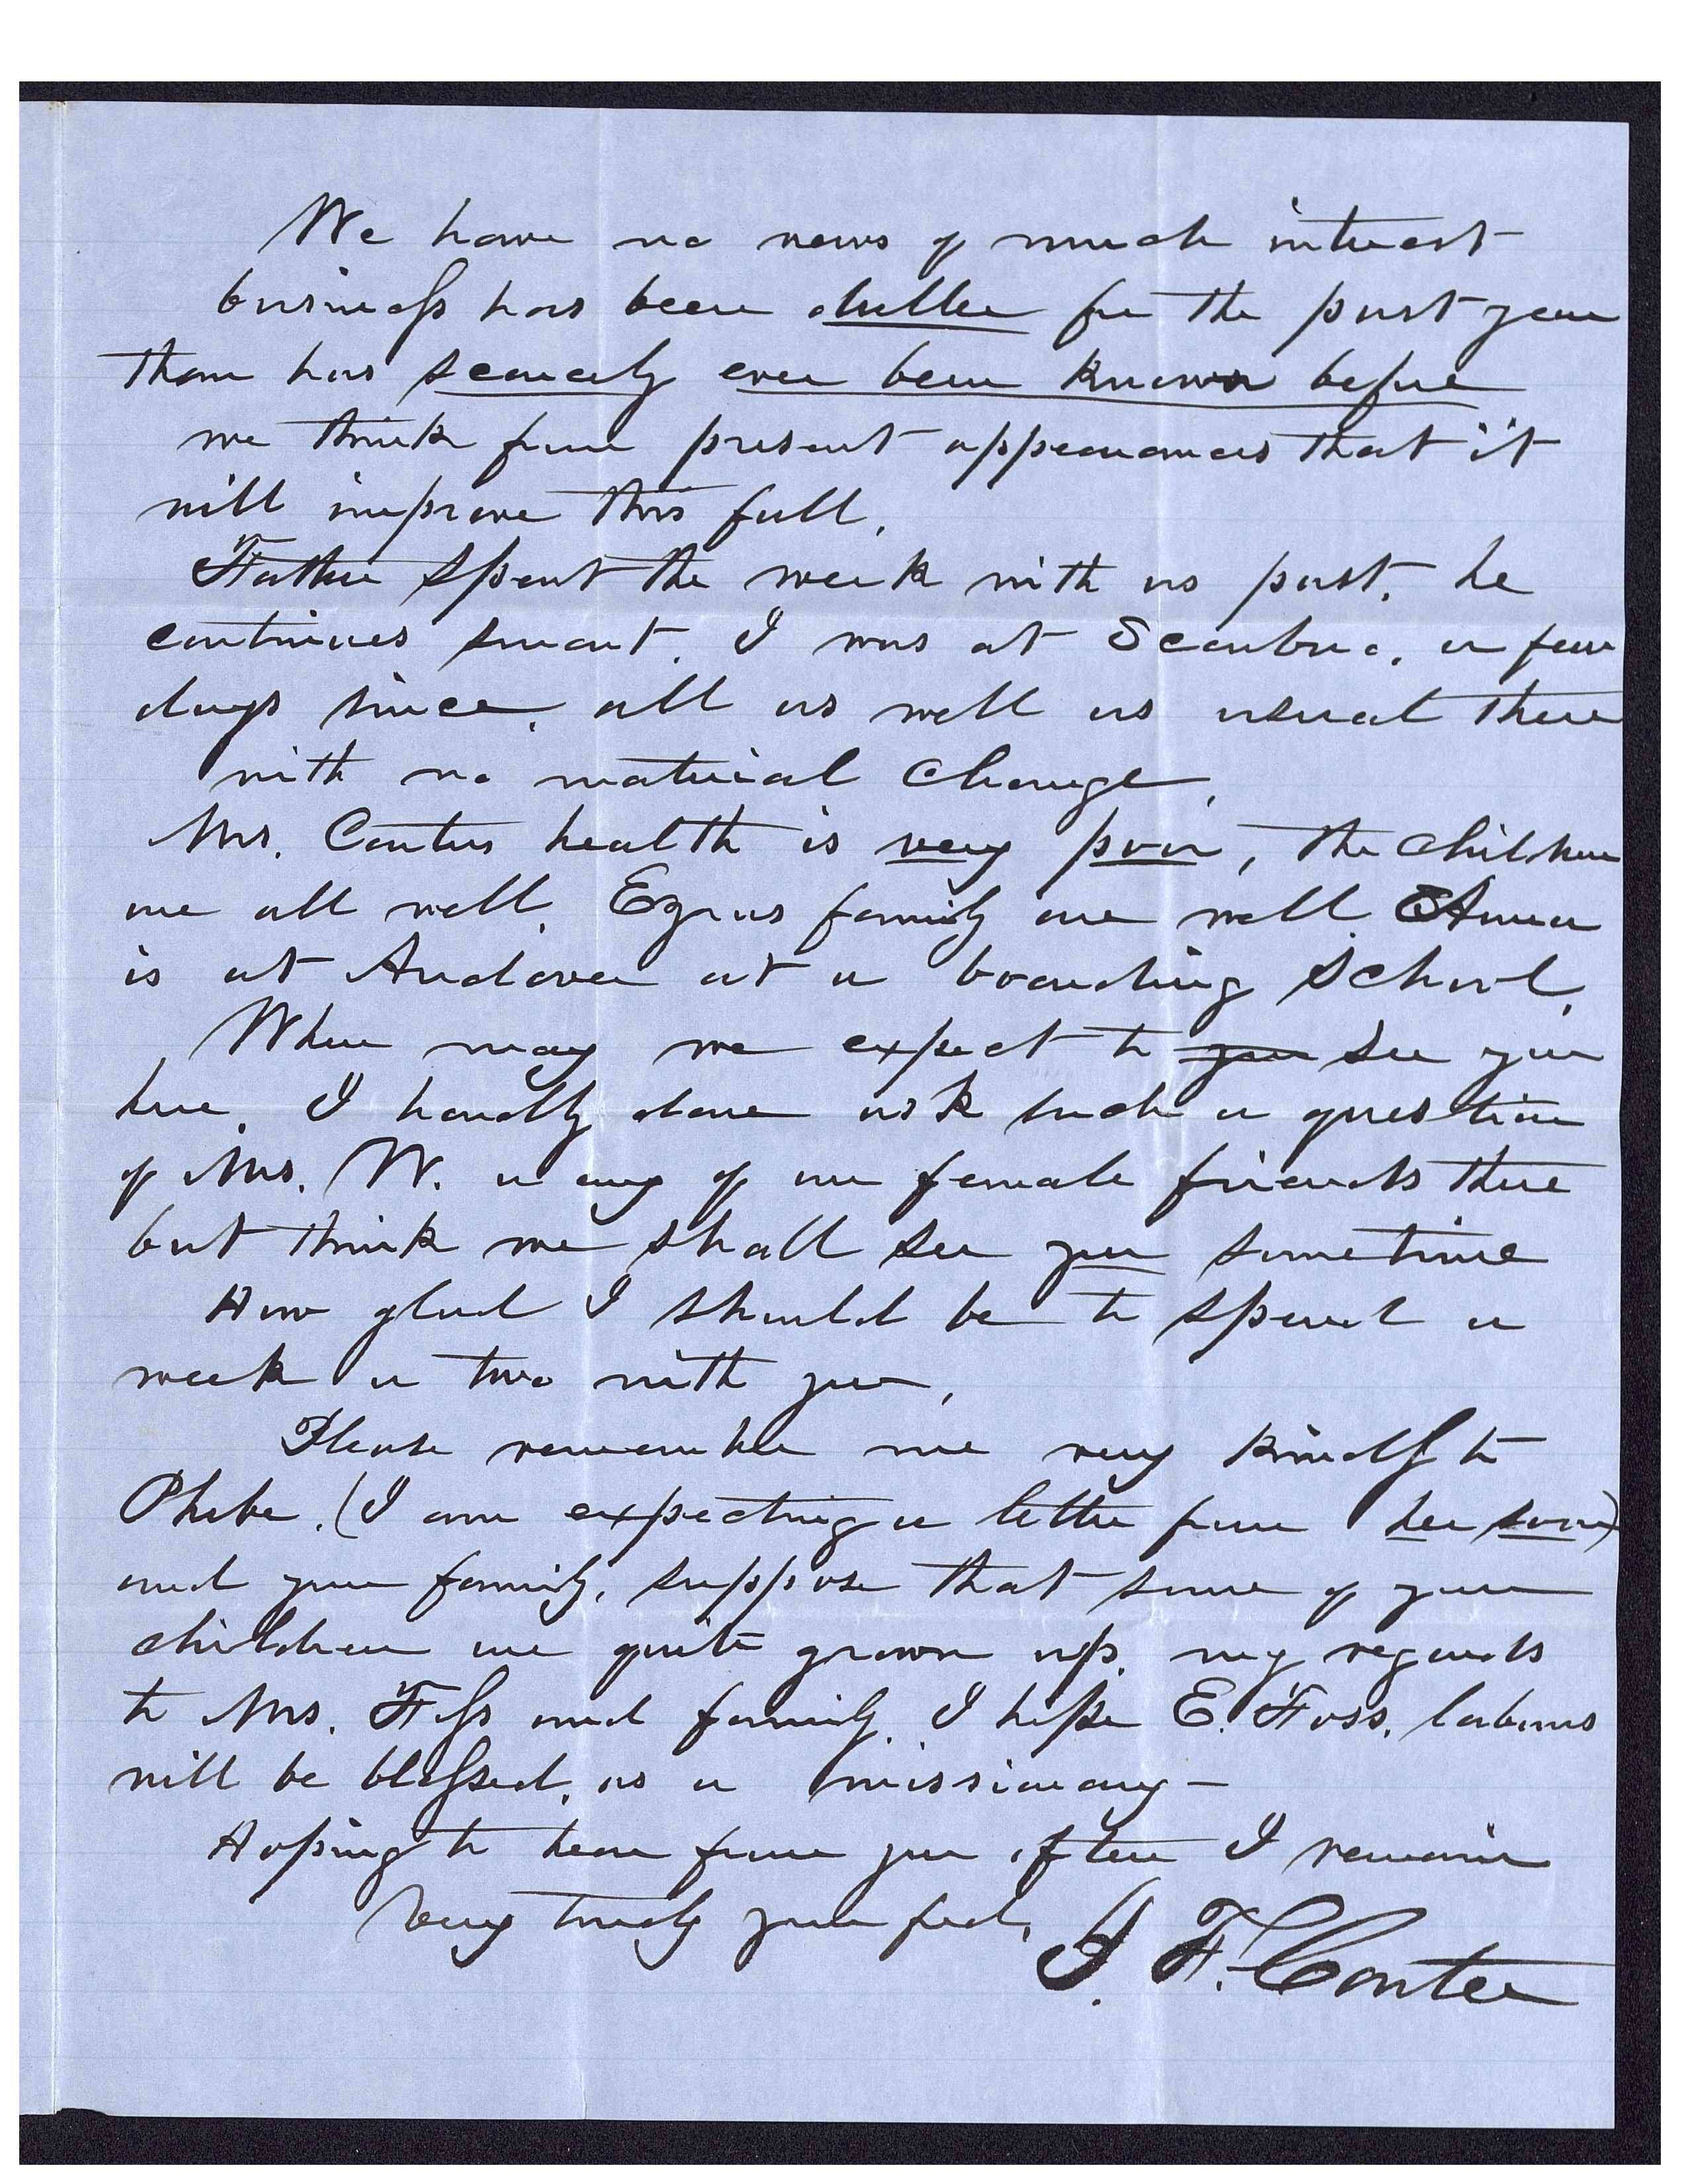 We have no news of much interest
business has been duller for the past year
than has scarcely ever been known before
we think from present appearances that it
will improve this fall.
Father spent the week with us past. he
continues smart. I was at Scarboro. a few
days since. all as well as usual there
with no material change.
Mrs. Carters health is very poor, the children
are all well. Ezras family are well. Anna
is at Andover at a boarding school.
When may we expect to you see you
here. I hardly dare ask such a question
of Mrs. W. or any of our female friends there
but think we shall see you sometime
How glad I should be to spend a
week or two with you,
Please remember me very kindly to
Phebe. (I am expecting a letter from her soon)
and your family. suppose that some of your
children are quite grown up. my regards
to Mrs. Foss and family. I hope E. Foss. labours
will be blessed. as a missionary —
Hoping to hear from you often I remain
Very truly your frd,
J. F. Carter